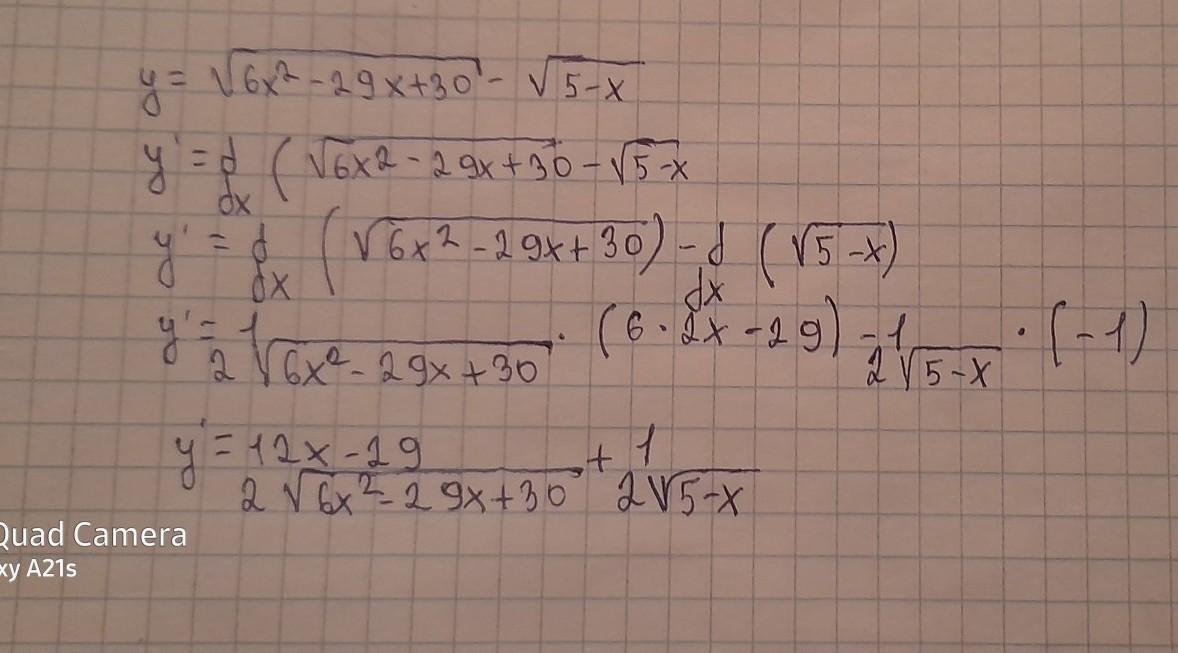 y = √(6x² - 29x + 30) - √(5-x)
y' = d/dx (√(6x2 - 29x + 30) - √(5-x)
y' = d/dx (√(6x² - 29x + 30)) - d/dx (√(5-x))
y' = 1/(2√(6x² - 29x + 30)) · (6 · 2x - 29) - 1/(2√(5-x)) · (-1)
y' = (12x - 29)/(2√(6x² - 29x + 30)) + 1/(2√(5-x))
Quad Camera
xy A21s